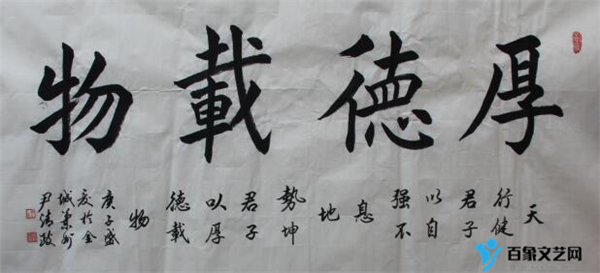 厚德載物
天
行健
君子
以自
强不
息
地
勢坤
君子
以厚
德載
物
庚子盛
夏於金
城蘭州
尹
百象文艺网